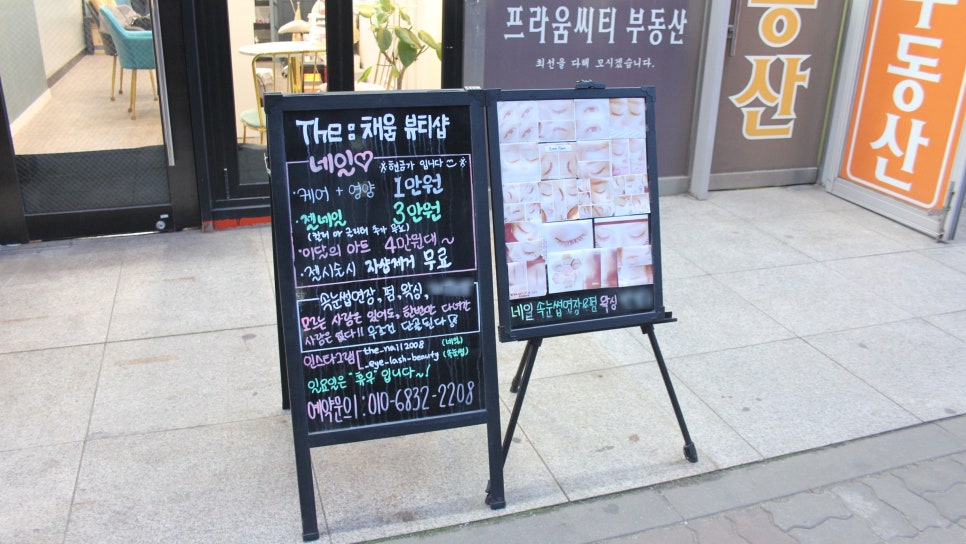 프라움씨티 부동산
최선을 다해 모시겠습니다.
부동산
The : 채움 뷰티샵
네일♡ ※현금가 입니다
·케어 + 영양 1만원
·젤네일 3만원
·이달의 아트 4만원대~
·젤시술시 자샵제거 무료
속눈썹연장, 펌, 왁싱,
모르는 사람은 있어도, 한번만 다녀간
사람은 없다!! 무조건 단골된다
인스타그램 the_nail2008 (네일)
_eye_lash_beauty (속눈썹)
일요일은 "휴무"입니다~!
예약문의 : 010-6832-2208
네일 속눈썹연장&펌 왁싱